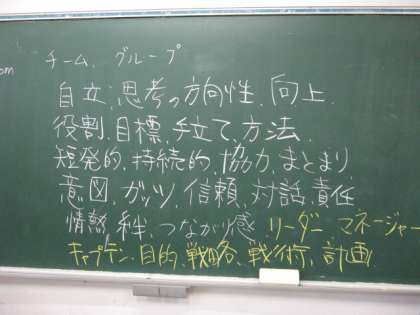 チーム、グループ
om
自立、思考の方向性、向上
役割、目標、手立て、方法
短発的、持続的、協力、まとまり
意図、ガッツ、信頼、対話、責任
情熱、絆、つながり感、リーダー、マネージャー
キャプテン、目的、戦略、戦術、計画